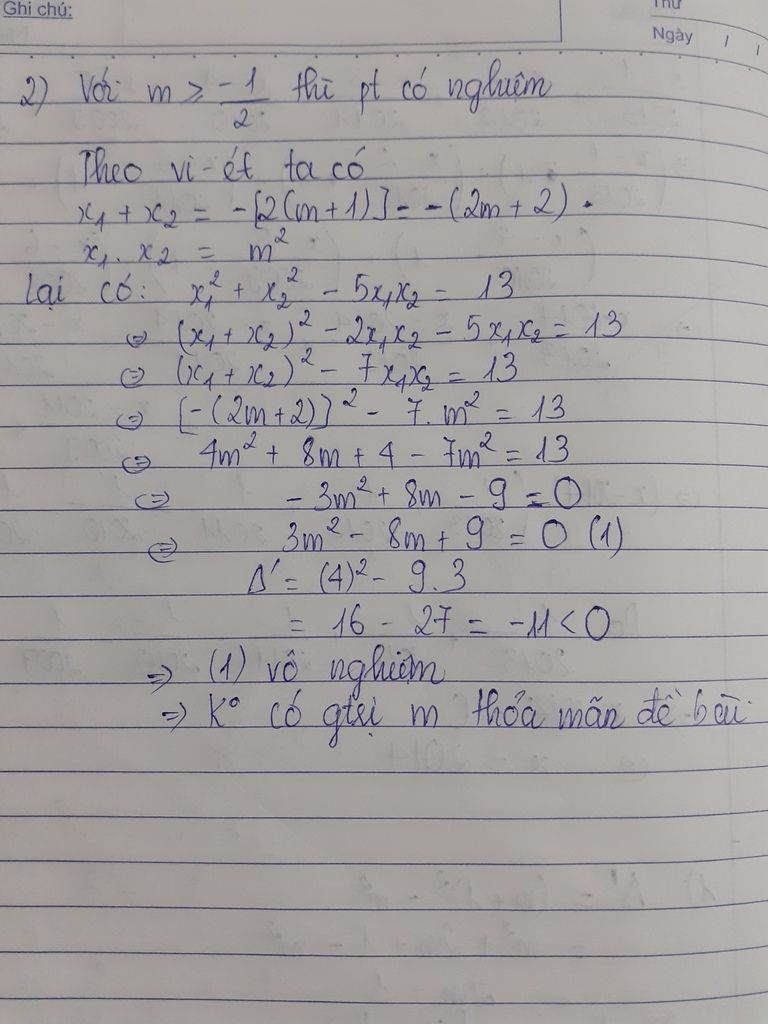 Ghi chú:
Thứ
Ngày / /
2) Với m ≥ -1/2 thì pt có nghiệm
Theo vi-ét ta có
x₁ + x₂ = -[2(m+1)] = -(2m+2).
x₁. x₂ = m²
Lại có: x₁² + x₂² - 5x₁x₂ = 13
⇔ (x₁ + x₂)² - 2x₁x₂ - 5x₁x₂ = 13
⇔ (x₁ + x₂)² - 7x₁x₂ = 13
⇔ [-(2m+2)]² - 7.m² = 13
⇔ 4m² + 8m + 4 - 7m² = 13
⇔ -3m² + 8m - 9 = 0
⇔ 3m² - 8m + 9 = 0 (1)
Δ' = (4)² - 9.3
= 16 - 27 = -11 < 0
⇒ (1) vô nghiệm
⇒ K° có gtrị m thỏa mãn đề bài